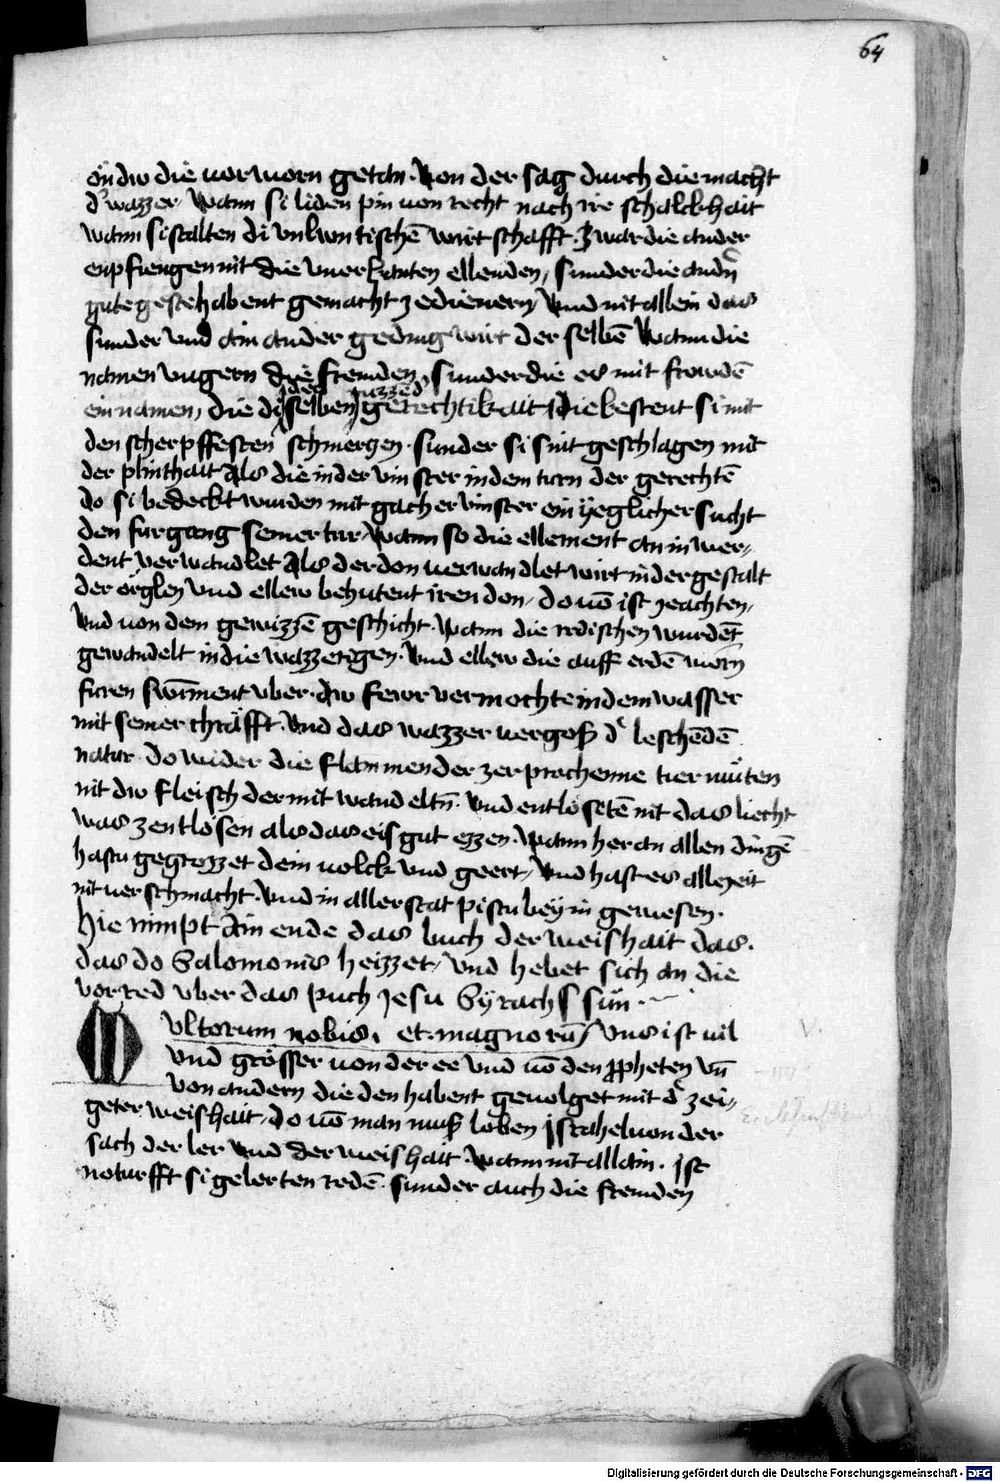 64
ön dw die uor worn getan. Von der sag durch die macht
d' wazzer Wann si liden pin uon recht nach ire schalckhait
wann si stalten di vnlwntischē wirtschafft. Zwar die ander
enpfiengen nit die vnerkanten ellenden, sunder die andn̄
gute geste habent gemacht ze dienern, Vnd nit allein das
sunder vnd ain ander geding wirt der selbē Wann die
namen vngern die fremden, sunder die es mit frewdē
ein namen, die di selben gerechtikait die bestent si mit
den scherpffesten schmerzen. sunder si sint geschlagen mit
der plinthait Als die in der vinster in dem turn der gerechtē
do si bedeckt wurden mit gacher vinster ein yeglicher sucht
den furgang seiner tur, Wann so die ellement an in wer,
dent verwandlet Als der don uerwandlet wirt in der gestalt
der örglen vnd ellew behutent iren don, do uō ist zeachten,
Vnd uon dem gewizzē geschicht. Wann die irdischen wurdēt
gewandelt in die wazzerigen. Vnd ellew die auff erdē worn
furen swīment vber. dw fewr vermochte in dem wasser
mit seiner chräfft. Vnd das wazzer uergoß d' leschēdē
natur. do wider die flammen der zerprochenne tier müten
nit dw fleisch der mit wandeltn̄. Vnd entlösetē nit das liecht
was zentlösen als das eis gut ezzen. Wann her an allen dingē
hastu gegrozzet dein uolck vnd geert, Vnd hast es allezeit
nit uerschmacht. Vnd in aller stat pistu bey in gewesen.
Hie nimpt Ain ende das buch der weishait das.
das do Salomonis heizzet, Vnd hebet sich an die
vorred vber das puch Jesu Syrachs sün.
Multorum nobis, et magnorū, Vns ist uil
Vnd grösser uon der ee vnd uō den ꝓpheten vn̄
von andern die den habent geuolget mit d' zei,
geter weishait, do uō man muß loben Jstahel uon der
sach der ler vnd der weishait. Wann nit allain. Jst
noturfft si gelerten redē. sunder auch die fremden
Digitalisierung gefördert durch die Deutsche Forschungsgemeinschaft - DFG